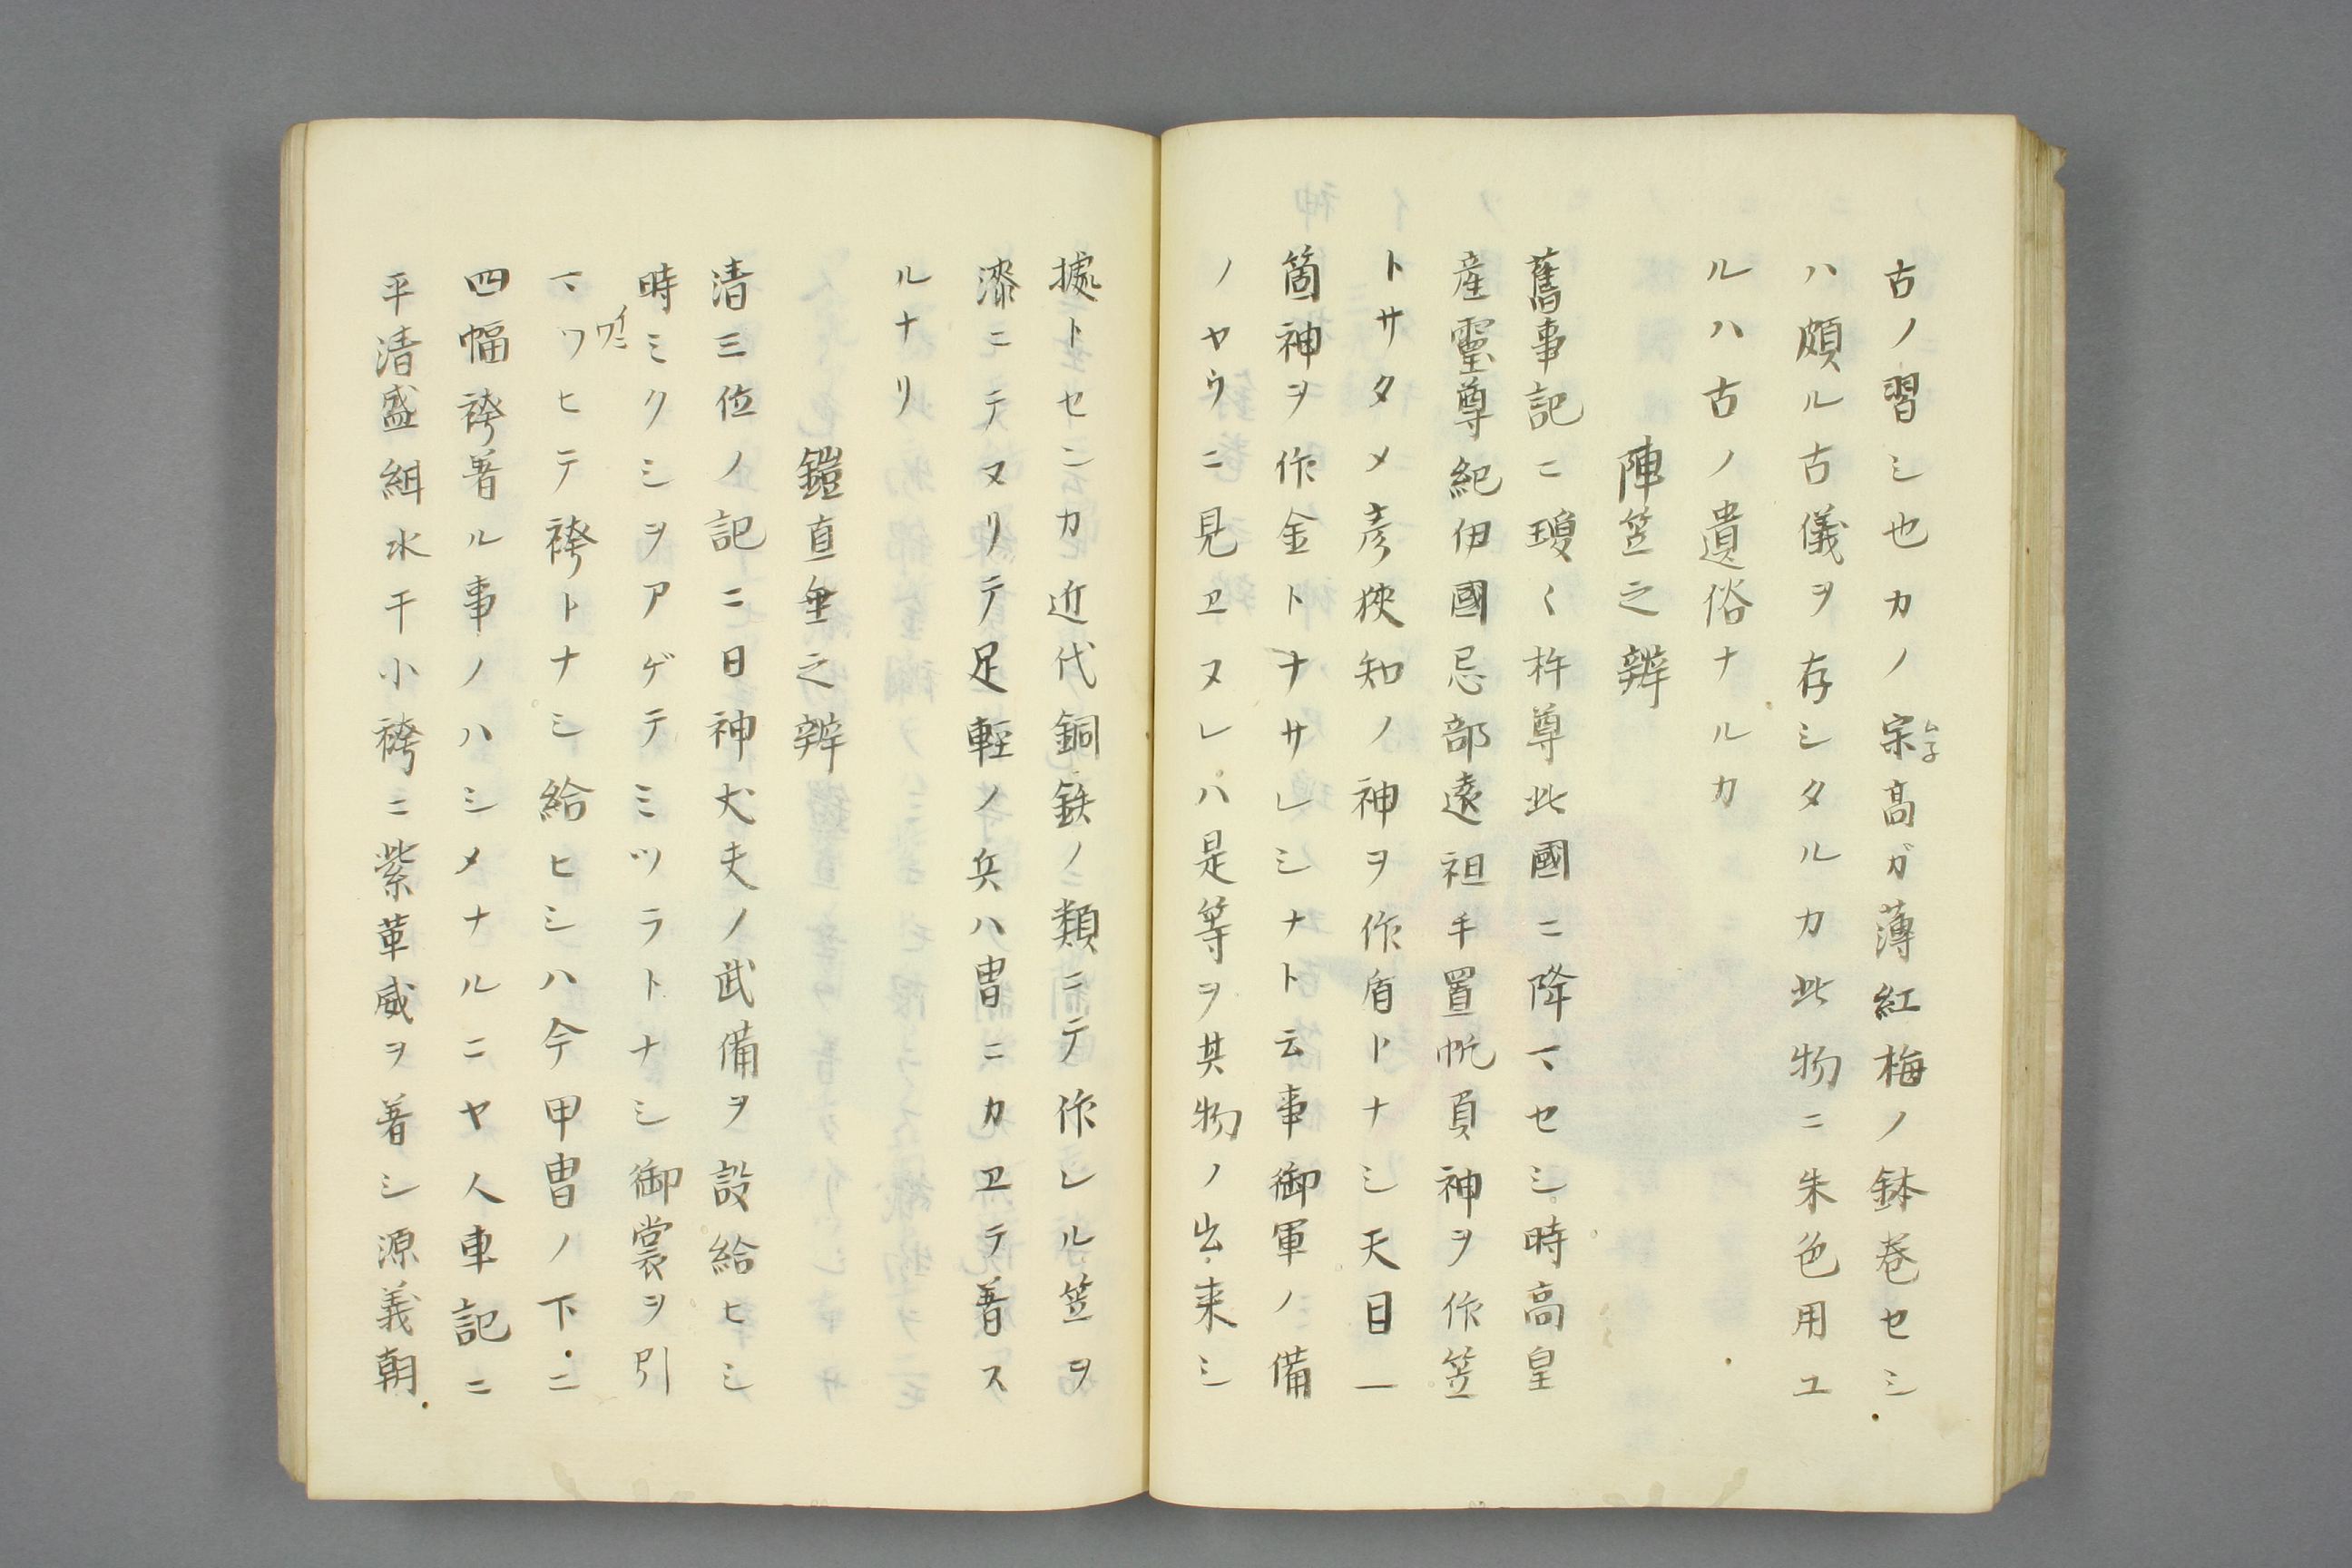 古ノ習シ也カノ宗高ガ薄紅梅ノ鉢巻セシ
ムネ
ハ頗ル古儀ヲ存シタルカ此物ニ朱色用ユ
ルハ古ノ遺俗ナルカ
陣笠之辨
舊事記ニ瓊〻杵尊此國ニ降マセシ時高皇
産靈尊紀伊國忌部遠祖手置帆負神ヲ作笠
トサタメ彦狹知ノ神ヲ作盾トナシ天目一
箇神ヲ作金トナサレシナト云事御軍ノ備
ノヤウニ見ヱヌレハ是等ヲ其物ノ出来シ
據トセンカ近代銅鉄ノ類ニテ作レル笠ヲ
漆ニテヌリテ足輕ノ兵ハ冑ニカヱテ著ス
ルナリ
鎧直垂之辨
清三位ノ記ニ日神大夫ノ武備ヲ設給ヒシ
時ミクシヲアゲテミツラトナシ御裳ヲ引
マツヒテ袴トナシ給ヒシハ今甲冑ノ下ニ
四幅袴著ル事ノハシメナルニヤ人車記ニ
平清盛絹水干小袴ニ紫革威ヲ著シ源義朝